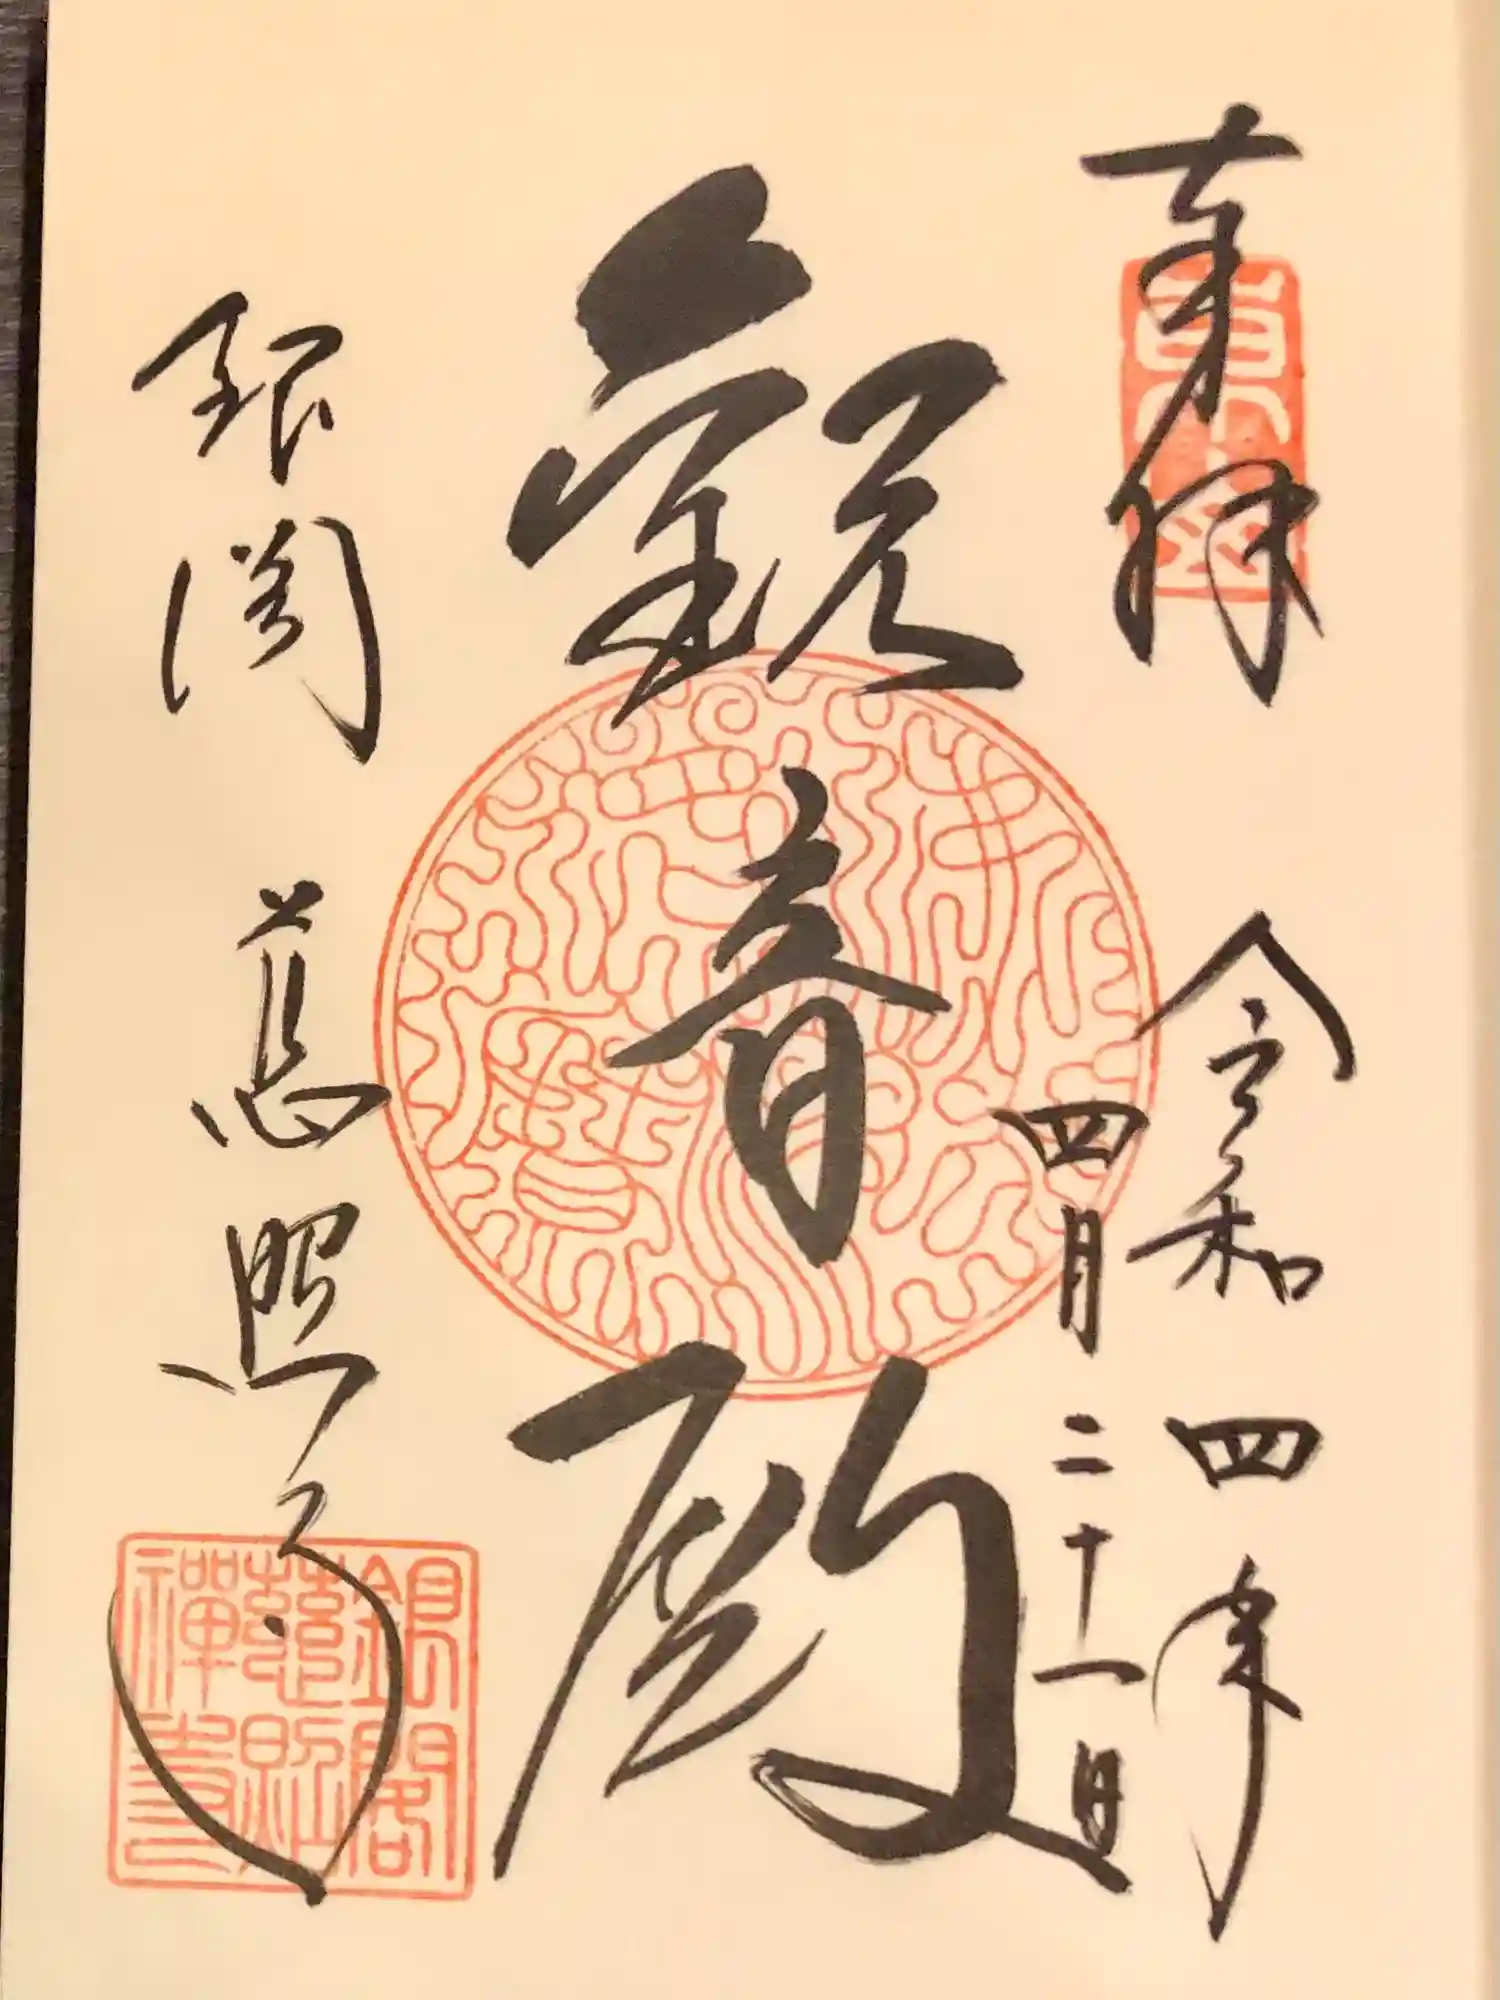 奉拝
東山
令和四年
四月二十一日
観音殿
銀閣
慈照寺
銀閣
慈照
禅寺